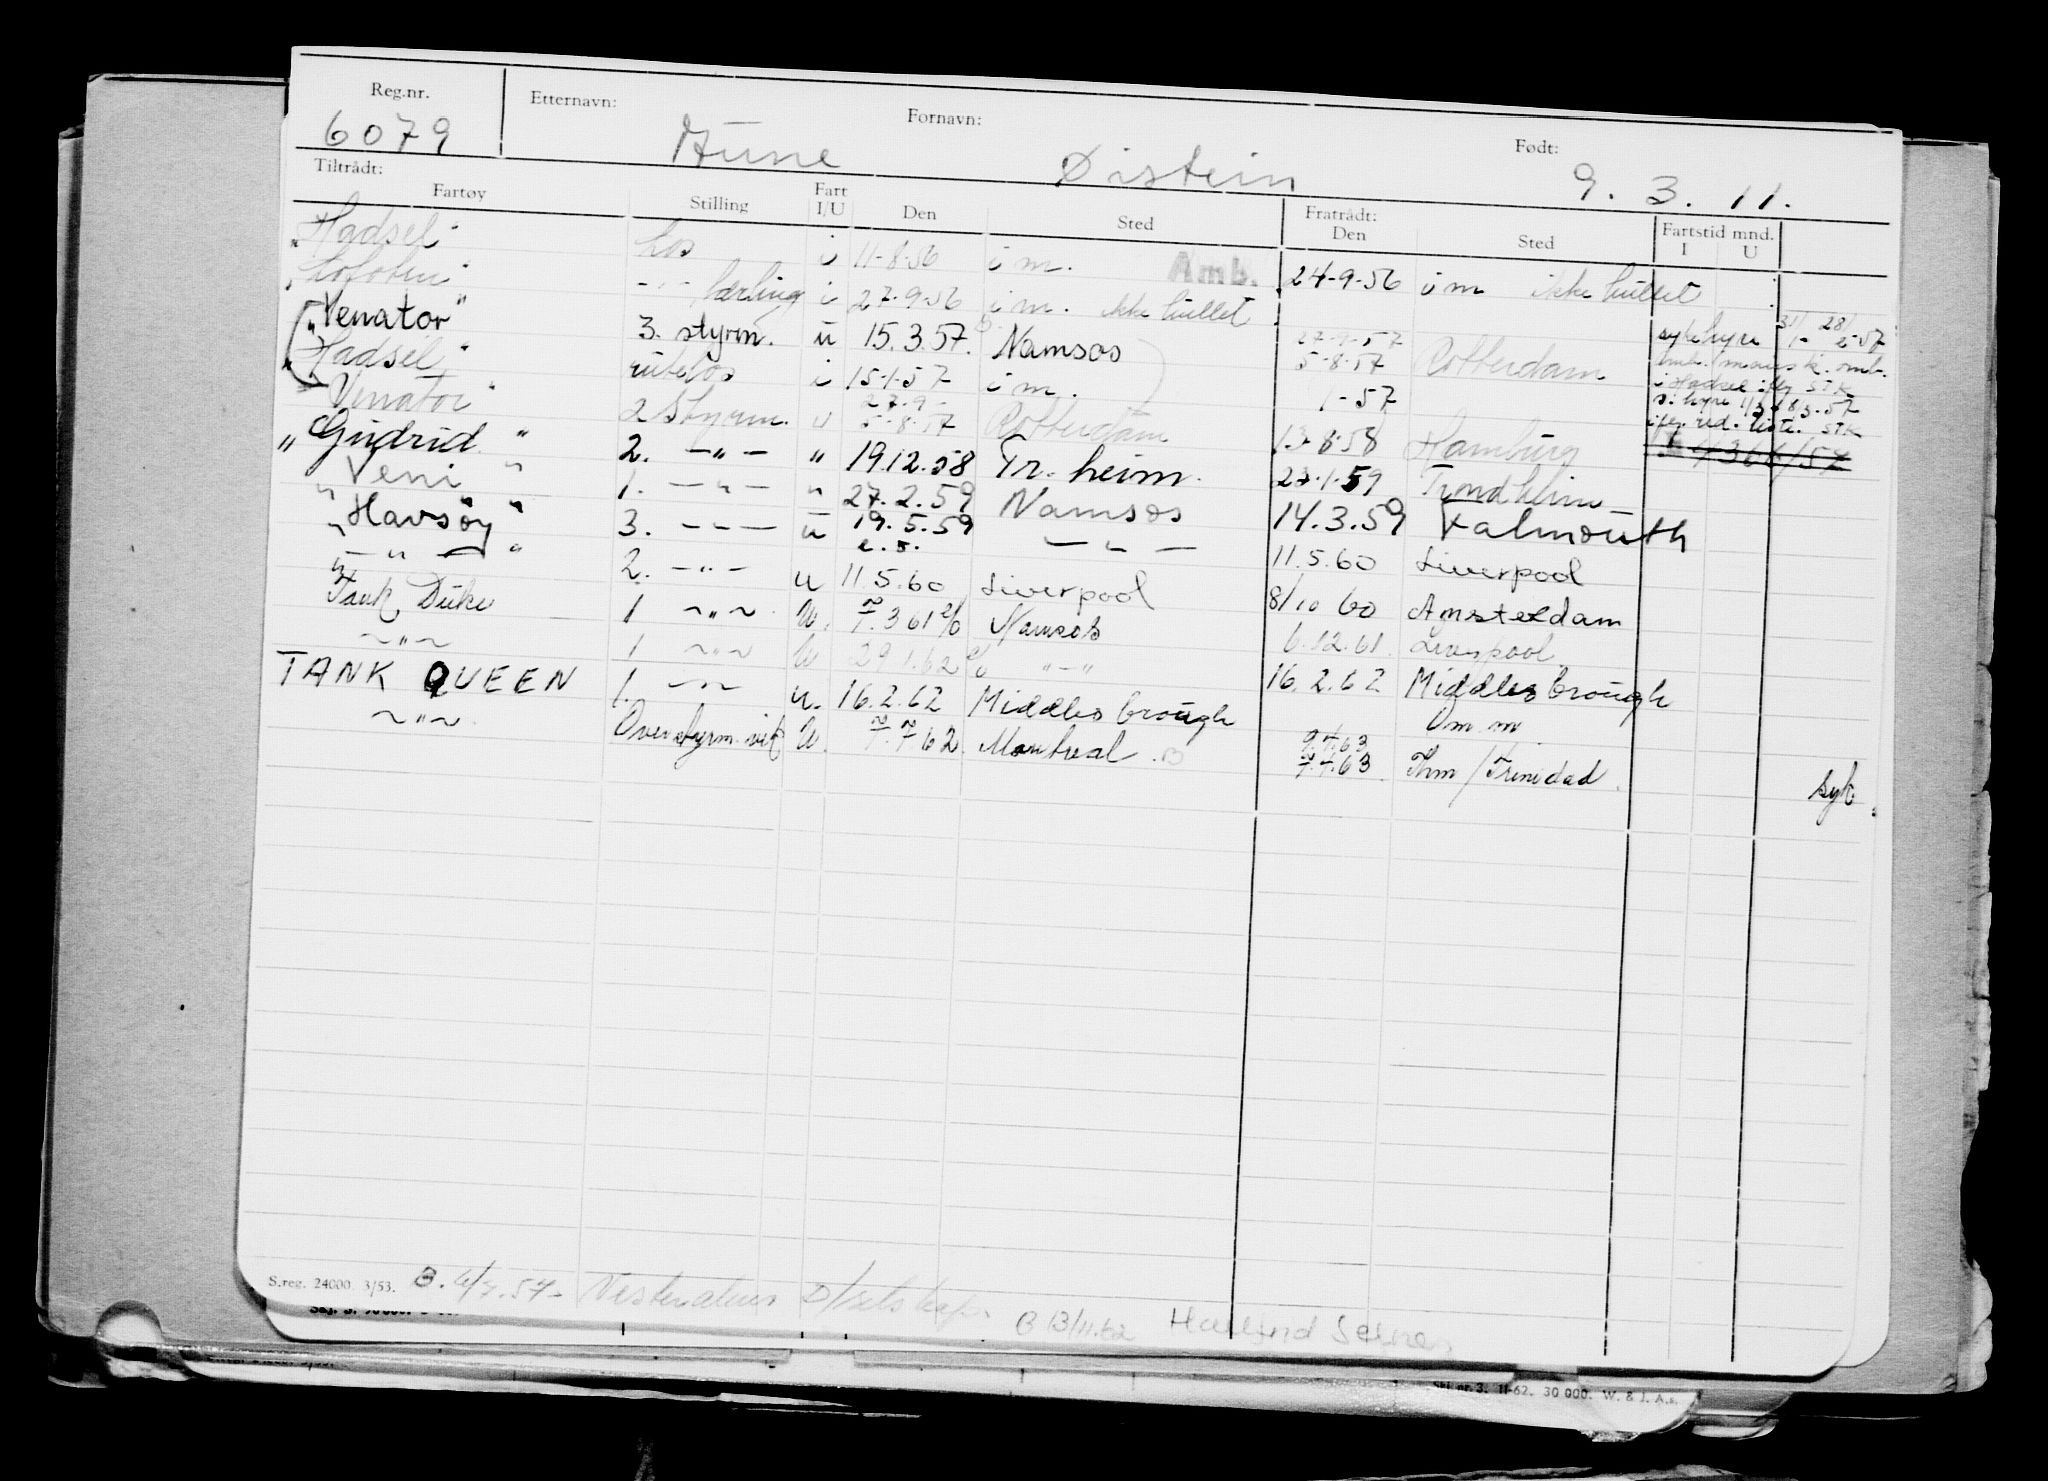 Reg.nr. Etternavn: Fornavn: Født:
6079 Aune Øistein 9. 3. 11.
Tiltrådt: Fratrådt: Fartstid mnd.
Fartøy Stilling Fart I/U Den Sted Den Sted I U
"Hadsel" los i 11-8-56 i m. Amb. 24-9-56 i m ikke hullet
"Lofoten" -"- lærling i 27-9-56 i m. ikke hullet
"Venator" 3. styrm. u 15.3.57. Namsos 27-9-57 5-8-57 Rotterdam sykehyre 31/1- 28/2-57
"Hadsel" i 15-1-57 i m. 1-57 i Hadsel iflg STK
"Venator" 2 styrm. u 27-9- 5-8-57 Rotterdam 13-8-58 Hamburg ifg. red. liste. STK
"Gudrid" 2. -"- " 19.12.58 Tr.heim. 23.1.59 Trondheim 4366/57
"Veni" 1. -"- " 27.2.59 Namsos 14.3.59 Falmouth
"Havsøy" 3. -"- u 19.5.59 -"- 11.5.60 Liverpool
" -"- " 2. -"- u 11.5.60 Liverpool 8/10 60 Amsterdam
Tank Duke 1 ~"~ U. 7.3 61 Namsos 6.12.61. Liverpool
~"~ 1 ~"~ U 29 1.62 "-" 16.2.62 Middlesbrough
TANK QUEEN 1. ~"~ u. 16.2.62 Middlesbrough Om m
~"~ Overstyrm. vik U. 7.7 62. Montreal 9.4.63 7.4.63 Hm/Trinidad. syk.
S.reg. 24000. 3/53. B. 4/7.57- Vesteraalens D/selskap.
B 13/11.62
Skj. nr. 3. 11-62. 30 000. W. & J. A.s.